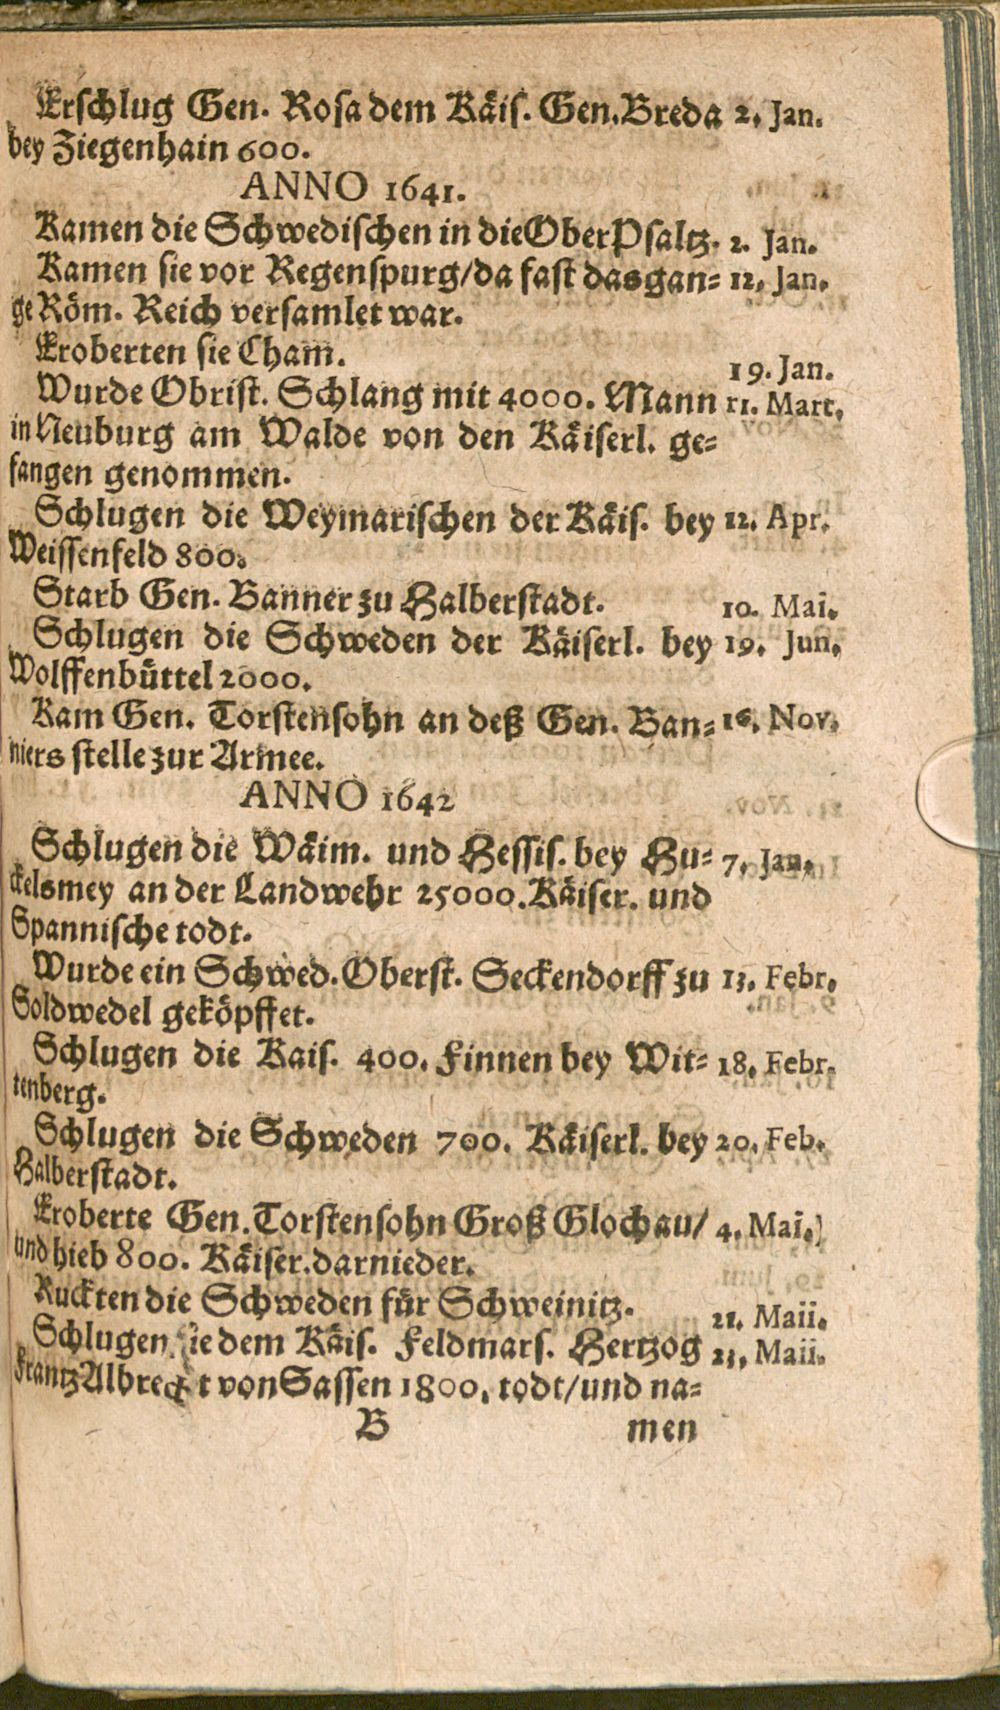 Erschlug Gen. Rosa dem Käis. Gen. Breda 2. Jan.
bey Ziegenhain 600.
ANNO 1641.
Kamen die Schwedischen in die OberPfaltz. 2. Jan.
Kamen sie vor Regenspurg/da fast das gan= 12. Jan.
ge Röm. Reich versamlet war.
Eroberten sie Cham. 19. Jan.
Wurde Obrist. Schlang mit 4000. Mann 11. Mart.
in Neuburg am Walde von den Käiserl. ge=
fangen genommen.
Schlugen die Weymarischen der Käis. bey 12. Apr.
Weissenfeld 800.
Starb Gen. Banner zu Halberstadt. 10. Mai.
Schlugen die Schweden der Käiserl. bey 19. Jun.
Wolffenbüttel 2000.
Kam Gen. Torstensohn an deß Gen. Ban= 16. Nov.
niers stelle zur Armee.
ANNO 1642
Schlugen die Wäim. und Hessis. bey Hu= 7. Jan.
ckelsmey an der Landwehr 25000. Käiser. und
Spannische todt.
Wurde ein Schwed. Oberst. Seckendorff zu 13. Febr.
Soldwedel geköpffet.
Schlugen die Kais. 400. Finnen bey Wit= 18. Febr.
tenberg.
Schlugen die Schweden 700. Käiserl. bey 20. Feb.
Halberstadt.
Eroberte Gen. Torstensohn Groß Glochau/ 4. Mai.
und hieb 800. Käiser. darnieder.
Ruckten die Schweden für Schweinitz. 21. Maii.
Schlugen sie dem Käis. Feldmars. Hertzog 21. Maii.
Frantz Albrecht von Sassen 1800. todt/und na=
B men